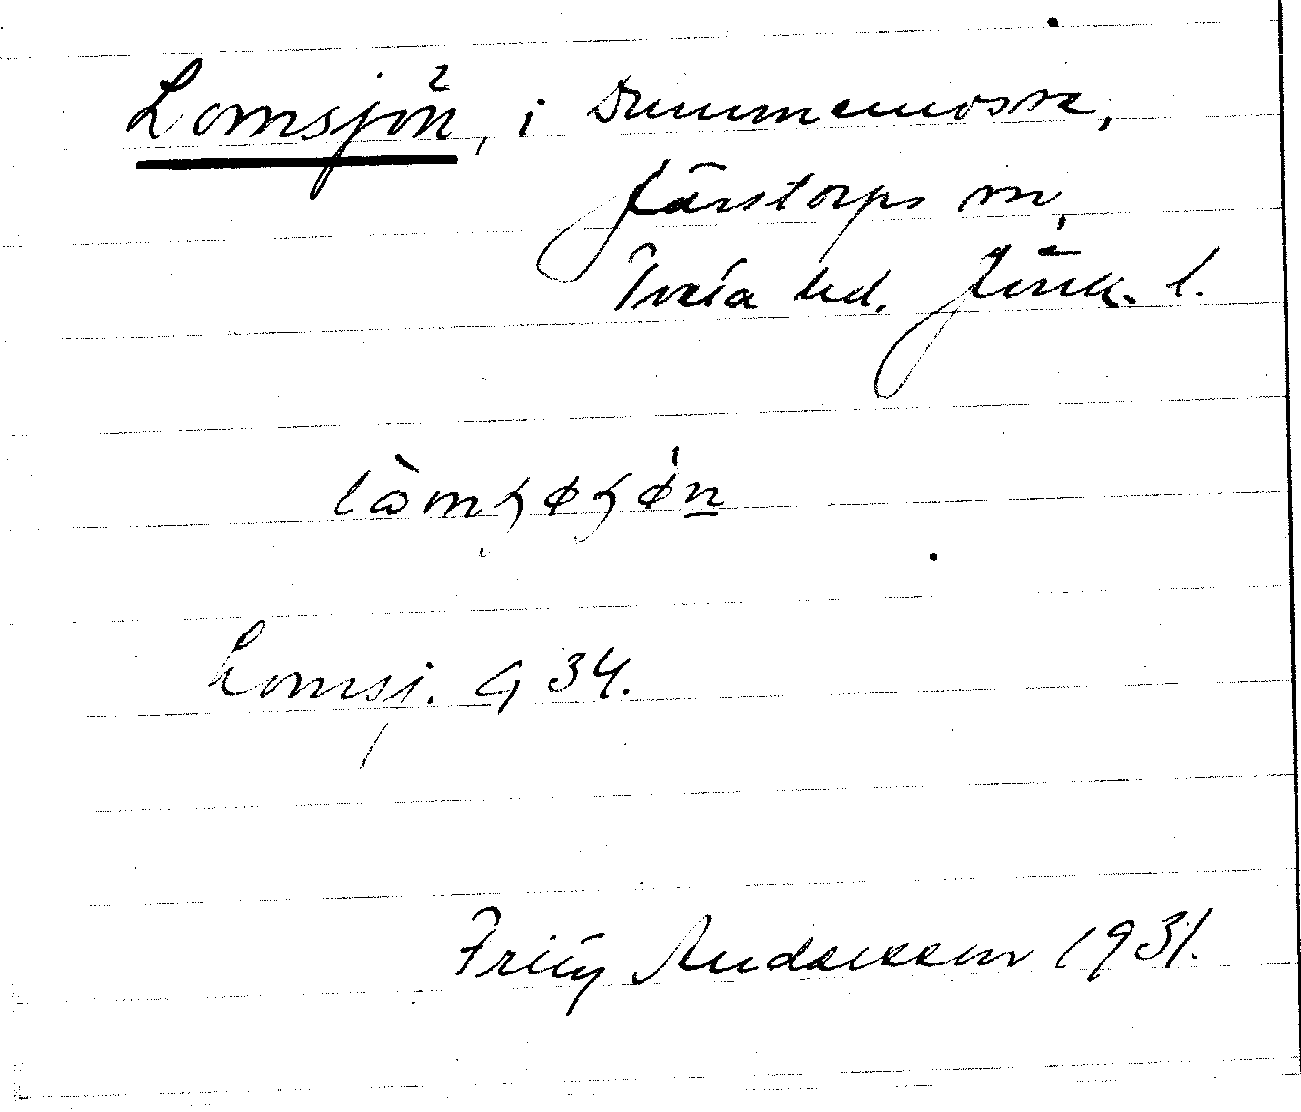 Lomsjön, i Dummemosse,
Järstorps sn,
Tveta hd. Jönk. l.
Lomsj. G 34.
Fritz Andersson 1931.